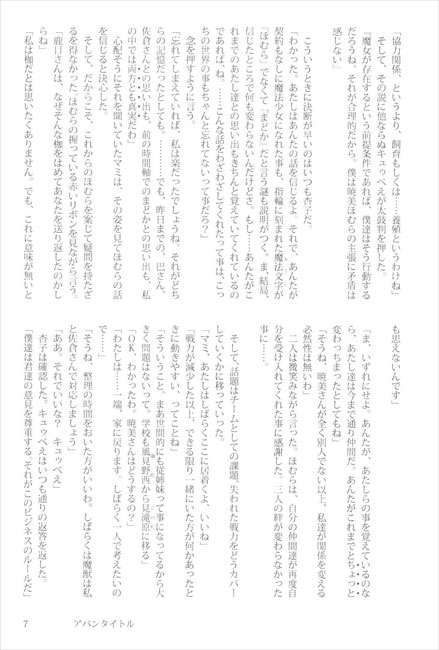 「協力関係、というより、飼育もしくは……養殖というわけね」
そして、その説に他ならぬキュゥべえが太鼓判を押した。
「魔女が存在するという前提条件であれば、僕達はそう行動する
だろうね。それが合理的だから。僕は暁美ほむらの主張に矛盾は
感じない」
こういうときに決断が早いのはいつも杏子だ。
「わかった。あたしはあんたの話を信じるよ。それで、あんたが
契約もなしに魔法少女になれた事も、指輪に刻まれた魔法文字が
『ほむら』でなくて『まどか』だと言う謎も説明がつく。ま、結局、
信じたところで何も変わらないんだけどさ。もし……あんたがこ
れまでのあたし達との思い出もきちんと覚えていてくれているの
であれば、ね。……こんな話をわざわざしてくれたって事は、こっ
ちの世界の事もちゃんと忘れてないって事だろ？」
念を押すように言う。
「忘れてしまえていれば、私は楽だったでしょうね。それがどち
らの記憶だったとしても………でも、昨日までの、巴さん、
佐倉さんとの思い出も、前の時間軸でのまどかとの思い出も、私
の中では両方とも真実だわ」
心配そうにそれを聞いていたマミは、その姿を見てほむらの話
を信じると決心した。
そして、だからこそ、これからのほむらを案じて疑問を持たざ
るを得なかった。ほむらの握っている赤いリボンを見ながら言う。
「鹿目さんは、なぜそんな枷をはめてあなたを送り返したのかし
らね」
「私は枷だとは思いたくありません。でも、これに意味が無いと
も思えないんです」
「ま、いずれにせよ、あんたが、あたしらの事を覚えているのな
ら、あたし達は今まで通り仲間だ。あんたがこれまでとちょっと
変わっちまったとしてもね」
「そうね、暁美さんが全く別人でない以上、私達が関係を変える
必然性は無いわ」
二人は微笑みながら言った。ほむらは、自分の仲間達が再度自
分を受け入れてくれた事に感謝した。三人の絆が変わらなかった
事に……。
そして、話題はチームとしての課題、失われた戦力をどうカバー
していくかに移っていった。
「マミ、あたしはしばらくここに居着くよ、いいね」
「戦力が減少した以上、できる限り一緒にいた方が何かあったと
きに動きやすい、ってことね」
「そういうこと。まあ世間的にも従姉妹って事になってるから大
きく問題はないって。学校も風見野西から見滝原に移る」
「OK、わかったわ。暁美さんはどうするの？」
「わたしは……一端、家に戻ります。しばらく一人で考えたいの
で……」
「そうね、整理の時間をおいた方がいいわ。しばらくは魔獣は私
と佐倉さんで対応しましょう」
「ああ、それでいいな？　キュゥべえ」
杏子は確認した。キュゥべえはいつも通りの返答を返した。
「僕達は君達の意見を尊重する。それがこのビジネスのルールだ」
7　アバンタイトル